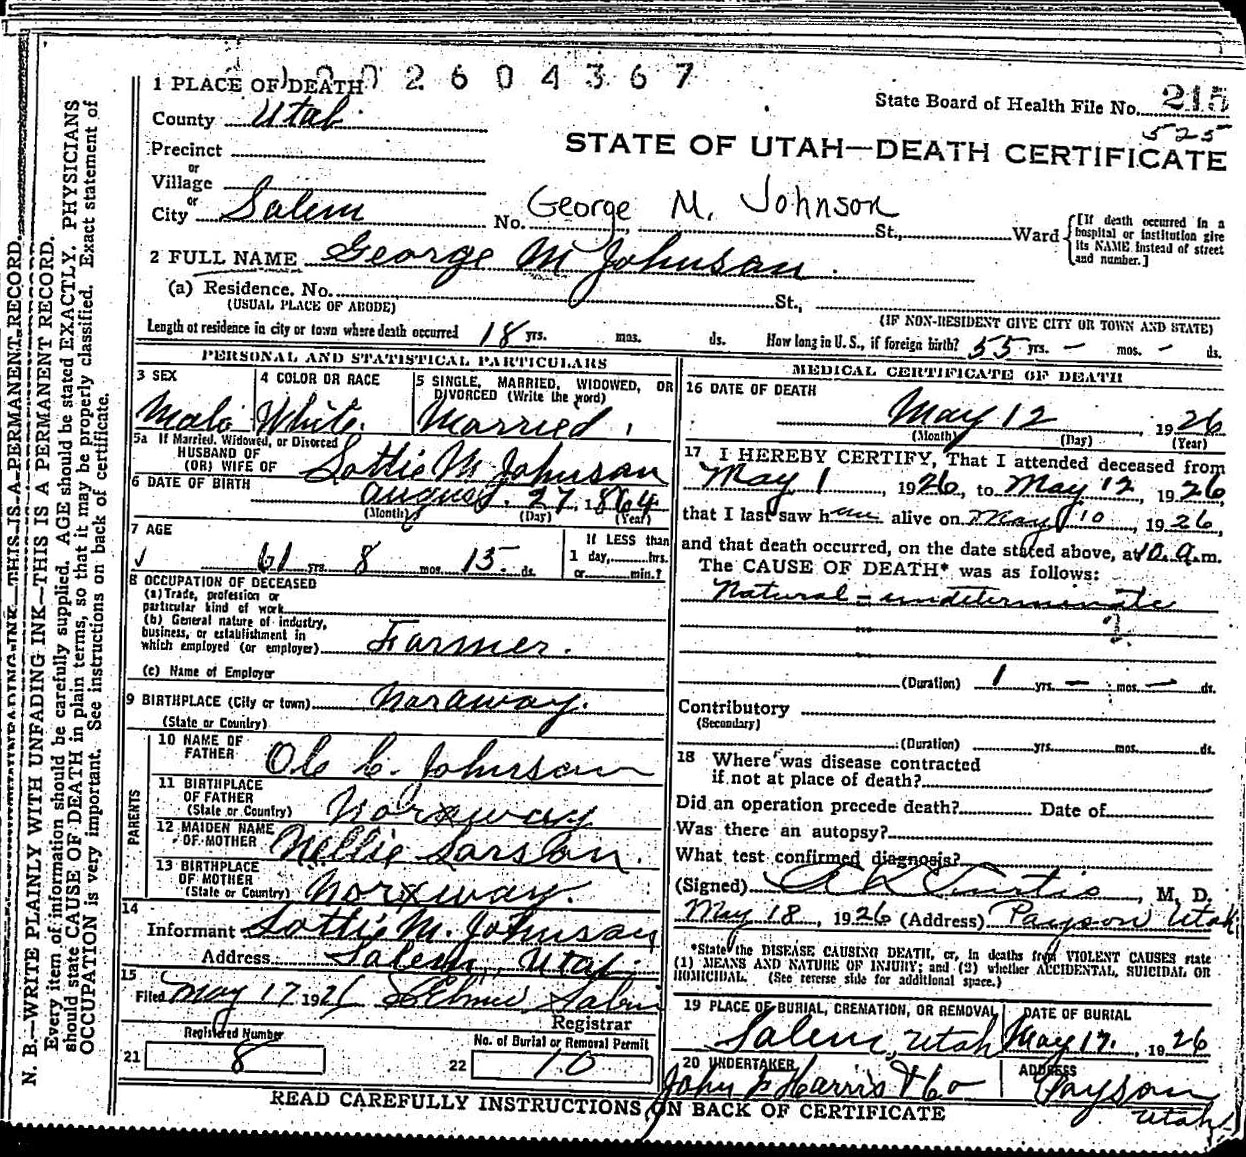 1002604367
1 PLACE OF DEATH
State Board of Health File No. 215
525
County Utah
STATE OF UTAH—DEATH CERTIFICATE
Precinct
or
Village
or
City Salem No. George M. Johnson St., Ward
[If death occurred in a hospital or institution give its NAME instead of street and number.]
2 FULL NAME George M Johnson
(a) Residence. No. St.,
(USUAL PLACE OF ABODE) (IF NON-RESIDENT GIVE CITY OR TOWN AND STATE)
Length of residence in city or town where death occurred 18 yrs. mos. ds. How long in U. S., if foreign birth? 55 yrs. – mos. – ds.
PERSONAL AND STATISTICAL PARTICULARS
3 SEX
Male
4 COLOR OR RACE
White.
5 SINGLE, MARRIED, WIDOWED, OR DIVORCED (Write the word)
Married
5a If Married, Widowed, or Divorced
HUSBAND OF
(OR) WIFE OF Lottie M Johnson
6 DATE OF BIRTH August 27, 1864
(Month) (Day) (Year)
7 AGE
61 yrs. 8 mos. 15 ds.
If LESS than
1 day, hrs.
or min.?
8 OCCUPATION OF DECEASED
(a) Trade, profession or
particular kind of work
(b) General nature of industry,
business, or establishment in
which employed (or employer) Farmer.
(c) Name of Employer
9 BIRTHPLACE (City or town) Noraway.
(State or Country)
PARENTS
10 NAME OF FATHER Ole C. Johnson
11 BIRTHPLACE OF FATHER
(State or Country) Norxway
12 MAIDEN NAME OF MOTHER Nellie Larson.
13 BIRTHPLACE OF MOTHER
(State or Country) Norxway.
14
Informant Lottie M. Johnson
Address Salem, Utah
15
Filed May 17 1926
Registrar
Registered Number
21 8
No. of Burial or Removal Permit
22 10
MEDICAL CERTIFICATE OF DEATH
16 DATE OF DEATH
May 12 1926
(Month) (Day) (Year)
17 I HEREBY CERTIFY, That I attended deceased from
May 1, 1926, to May 12, 1926
that I last saw him alive on May 10, 1926,
and that death occurred, on the date stated above, at 10 a.m.
The CAUSE OF DEATH* was as follows:
Natural – undeterminate
?
(Duration) 1 yrs. – mos. – ds.
Contributory
(Secondary)
(Duration) yrs. mos. ds.
18 Where was disease contracted
if not at place of death?
Did an operation precede death? Date of
Was there an autopsy?
What test confirmed diagnosis?
(Signed) A L Curtis, M. D.
May 18, 1926 (Address) Payson Utah
*State the DISEASE CAUSING DEATH, or, in deaths from VIOLENT CAUSES state
(1) MEANS AND NATURE OF INJURY; and (2) whether ACCIDENTAL, SUICIDAL OR
HOMICIDAL. (See reverse side for additional space.)
19 PLACE OF BURIAL, CREMATION, OR REMOVAL
Salem, Utah
DATE OF BURIAL
May 17, 1926
20 UNDERTAKER
John F Harris & Co
ADDRESS
Payson
Utah
READ CAREFULLY INSTRUCTIONS ON BACK OF CERTIFICATE
N. B.—WRITE PLAINLY WITH UNFADING INK—THIS IS A PERMANENT RECORD.
Every item of information should be carefully supplied. AGE should be stated EXACTLY. PHYSICIANS
should state CAUSE OF DEATH in plain terms, so that it may be properly classified. Exact statement of
OCCUPATION is very important. See instructions on back of certificate.